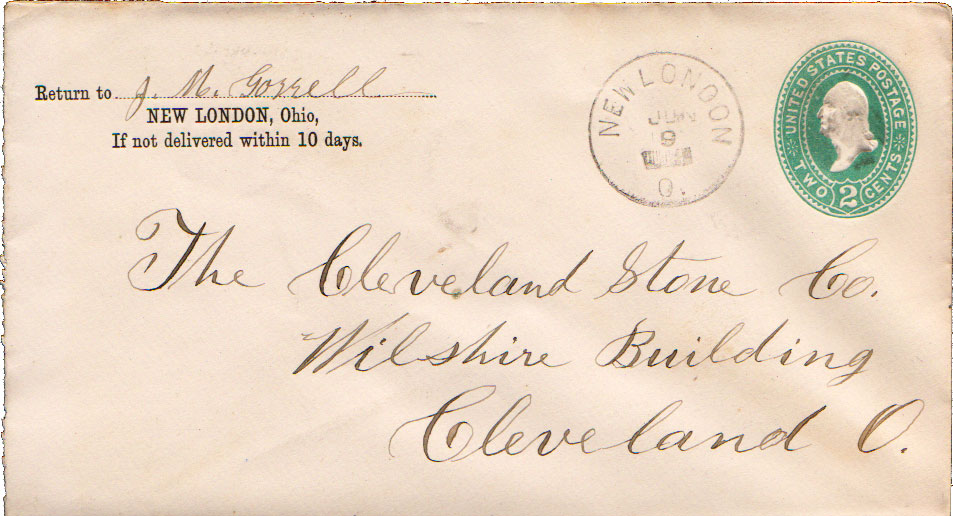 Return to J. M. Gorrell
NEW LONDON, Ohio,
If not delivered within 10 days.
NEW LONDON
JUN
9
O.
UNITED STATES POSTAGE
TWO 2 CENTS
The Cleveland Stone Co.
Wilshire Building
Cleveland O.